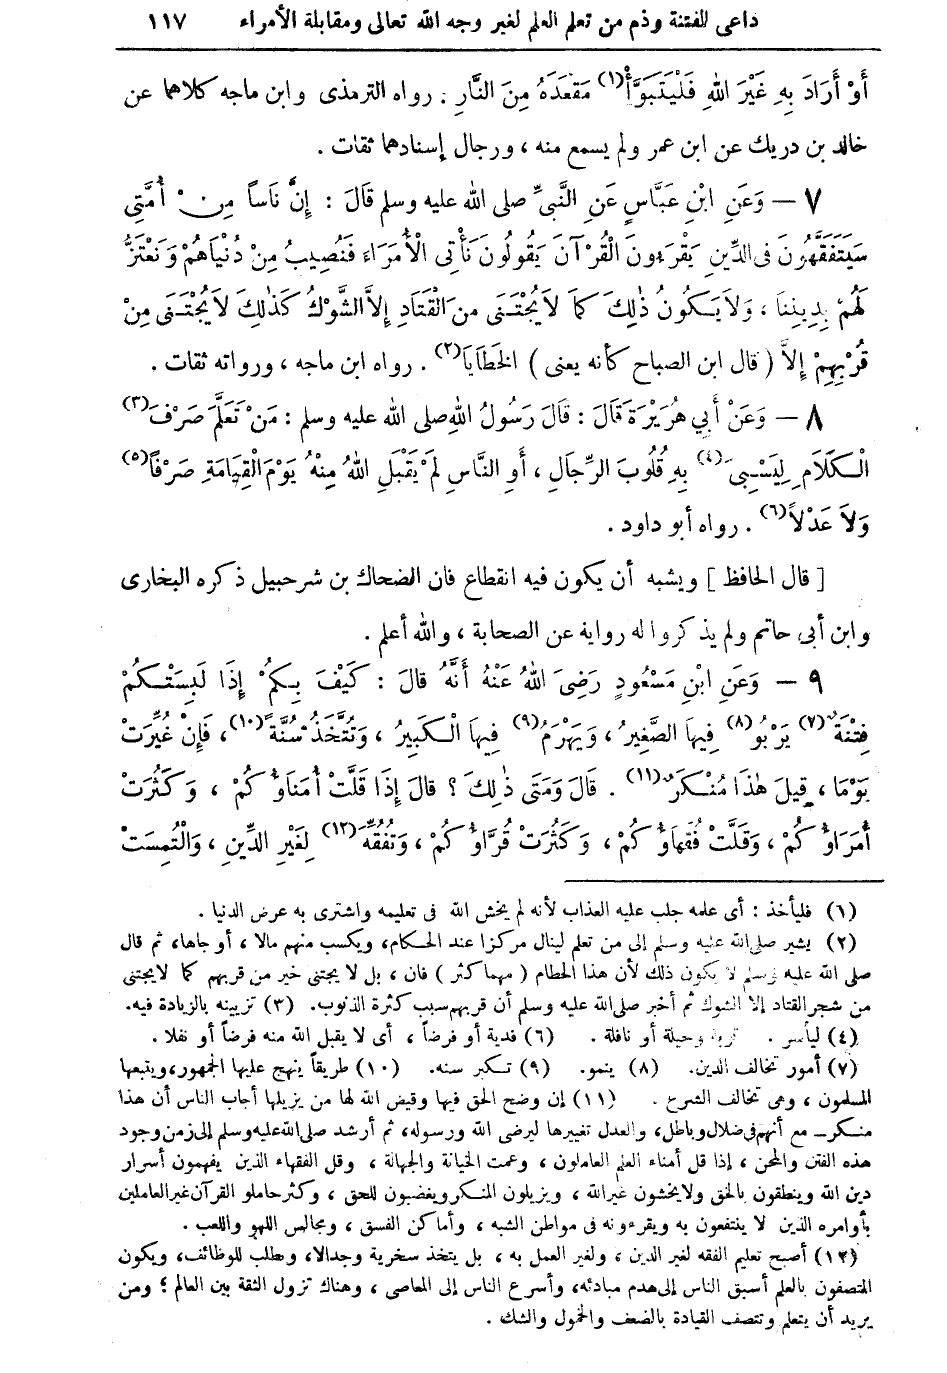 داعى للفتنة وذم من تعلم العلم لغير وجه الله تعالى ومقابلة الأمراء ١١٧
أَوْ أَرَادَ بِهِ غَيْرَ اللهِ فَلْيَتَبَوَّأْ(١) مَقْعَدَهُ مِنَ النَّارِ . رواه الترمذى وابن ماجه كلاهما عن
خالد بن دريك عن ابن عمر ولم يسمع منه ، ورجال إسنادهما ثقات .
٧ — وَعَنِ ابْنِ عَبَّاسٍ عَنِ النَّبِيِّ صلى الله عليه وسلم قَالَ : إِنَّ نَاساً مِنْ أُمَّتِى
سَيَتَفَقَّهُونَ فِى الدِّينِ يَقْرَءونَ الْقُرْآنَ يَقُولُونَ نَأْتِى الْأُمَرَاءَ فَنُصِيبُ مِنْ دُنْيَاهُمْ وَنَعْتَزِلُ
لَهُمْ بِدِينِنَا ، وَلاَ يَكُونُ ذٰلِكَ كَمَا لاَ يُجْتَنَى مِنَ الْقَتَادِ إِلاَّ الشَّوْكُ كَذٰلِكَ لاَ يُجْتَنَى مِنْ
قُرْبِهِمْ إِلاَّ ( قال ابن الصباح كأنه يعنى ) الخَطَايَا(٢) . رواه ابن ماجه ، ورواته ثقات .
٨ — وَعَنْ أَبِي هُرَيْرَةَ قَالَ : قَالَ رَسُولُ اللهِ صلى الله عليه وسلم : مَنْ تَعَلَّمَ صَرْفَ(٣)
الْكَلَامِ لِيَسْبِىَ(٤) بِهِ قُلُوبَ الرِّجَالِ ، أَوِ النَّاسِ لَمْ يَقْبَلِ اللهُ مِنْهُ يَوْمَ الْقِيَامَةِ صَرْفًا(٥)
وَلاَ عَدْلاً(٦) . رواه أبو داود .
[ قال الحافظ ] ويشبه أن يكون فيه انقطاع فان الضحاك بن شرحبيل ذكره البخارى
وابن أبى حاتم ولم يذكروا له رواية عن الصحابة ، والله أعلم .
٩ — وَعَنِ ابْنِ مَسْعُودٍ رَضِىَ اللهُ عَنْهُ أَنَّهُ قَالَ : كَيْفَ بِكُمْ إِذَا لَبِسَتْكُمْ
فِتْنَةٌ(٧) يَرْبُو(٨) فِيهَا الصَّغِيرُ ، وَيَهْرَمُ(٩) فِيهَا الْكَبِيرُ ، وَتُتَّخَذُ سُنَّةً(١٠) ، فَإِنْ غُيِّرَتْ
يَوْمًا ، قِيلَ هٰذَا مُنْكَرٌ(١١) . قَالَ وَمَتَى ذٰلِكَ ؟ قَالَ إِذَا قَلَّتْ أُمَنَاؤُكُمْ ، وَكَثُرَتْ
أُمَرَاؤُكُمْ ، وَقَلَّتْ فُقَهَاؤُكُمْ ، وَكَثُرَتْ قُرَّاؤُكُمْ ، وَتُفُقِّهَ(١٢) لِغَيْرِ الدِّينِ ، وَالْتُمِسَتْ
(١) فليأخذ : أى علمه جلب عليه العذاب لأنه لم يخش الله فى تعليمه واشترى به عرض الدنيا .
(٢) يشير صلى الله عليه وسلم إلى من تعلم لينال مركزا عند الحكام، ويكسب منهم مالا ، أو جاها، ثم قال
صلى الله عليه وسلم لا يكون ذلك لأن هذا الحطام ( مهما كثر ) فان ، بل لا يجتنى خير من قربهم كما لا يجتنى
من شجر القتاد إلا الشوك ثم أخبر صلى الله عليه وسلم أن قربهم سبب كثرة الذنوب. (٣) تزيينه بالزيادة فيه.
(٤) ليأسر . توبة وحيلة أو نافلة . (٦) فدية أو فرضاً ، أى لا يقبل الله منه فرضاً أو نفلا .
(٧) أمور تخالف الدين. (٨) ينمو. (٩) تكبر سنه. (١٠) طريقاً ينهج عليها الجمهور، ويتبعها
المسلمون ، وهى تخالف الشرع . (١١) إن وضح الحق فيها وقيض الله لها من يزيلها أجاب الناس أن هذا
منكر ــ مع أنهم فى ضلال وباطل، والعدل تغييرها ليرضى الله ورسوله، ثم أرشد صلى الله عليه وسلم إلى زمن وجود
هذه الفتن والمحن ، إذا قل أمناء العلم العاملون ، وعمت الخيانة والجهالة ، وقل الفقهاء الذين يفهمون أسرار
دين الله وينطقون بالحق ولا يخشون غير الله ، ويزيلون المنكر ويغضبون للحق ، وكثر حاملو القرآن غير العاملين
بأوامره الذين لا ينتفعون به ويقرءونه فى مواطن الشبه ، وأماكن الفسق ، ومجالس اللهو واللعب .
(١٢) أصبح تعليم الفقه لغير الدين ، ولغير العمل به ، بل يتخذ سخرية وجدالا، وطلب للوظائف، ويكون
المتصفون بالعلم أسبق الناس إلى هدم مبادئه، وأسرع الناس إلى المعاصى ، وهناك تزول الثقة بين العالم ؛ ومن
يريد أن يتعلم وتتصف القيادة بالضعف والخمول والشك .